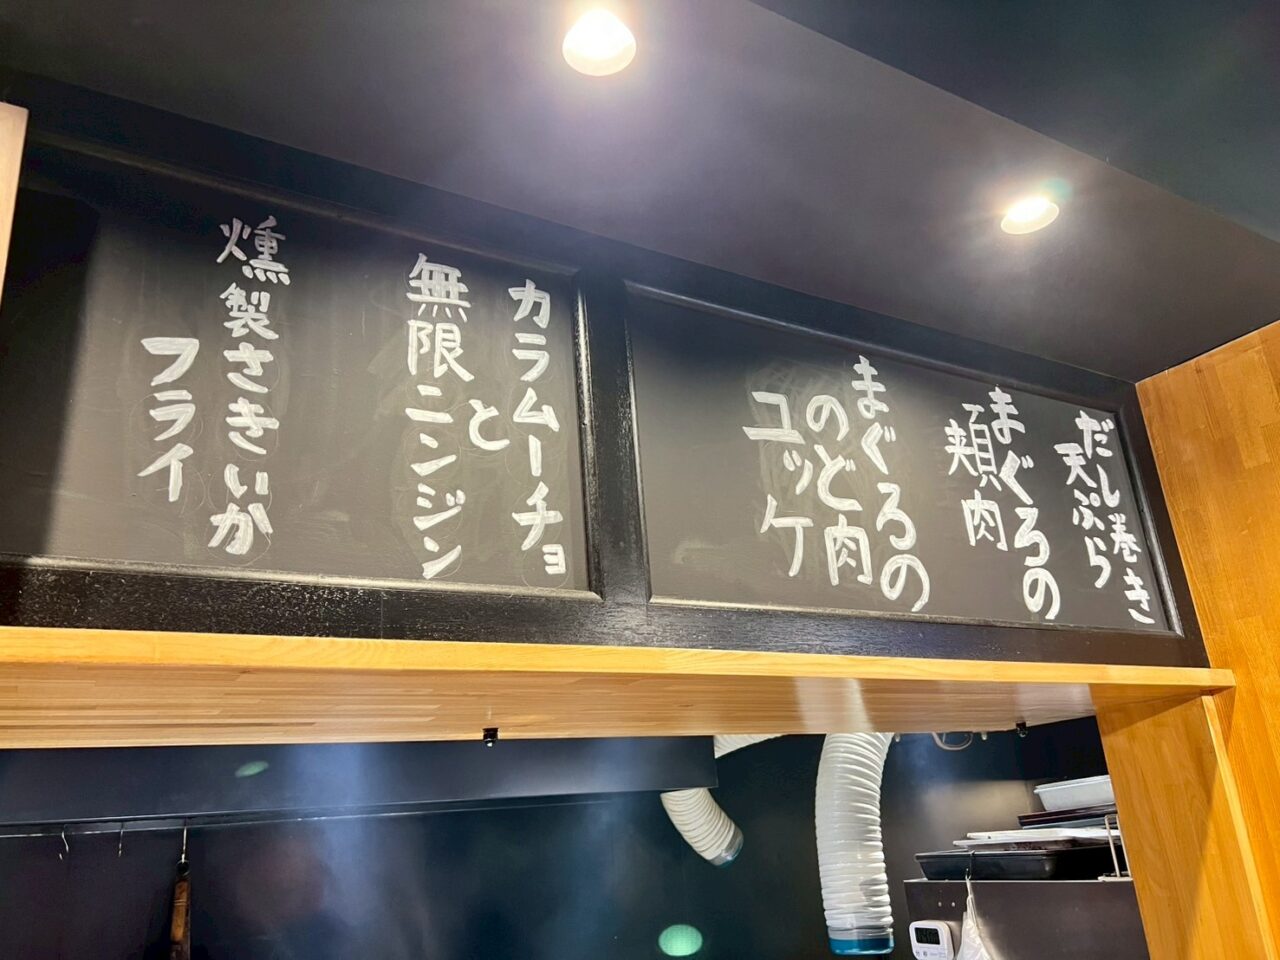 だし巻き
天ぷら
まぐろの
頬肉
まぐろの
のど肉
ユッケ
カラムーチョ
と
無限ニンジン
燻製さきいか
フライ